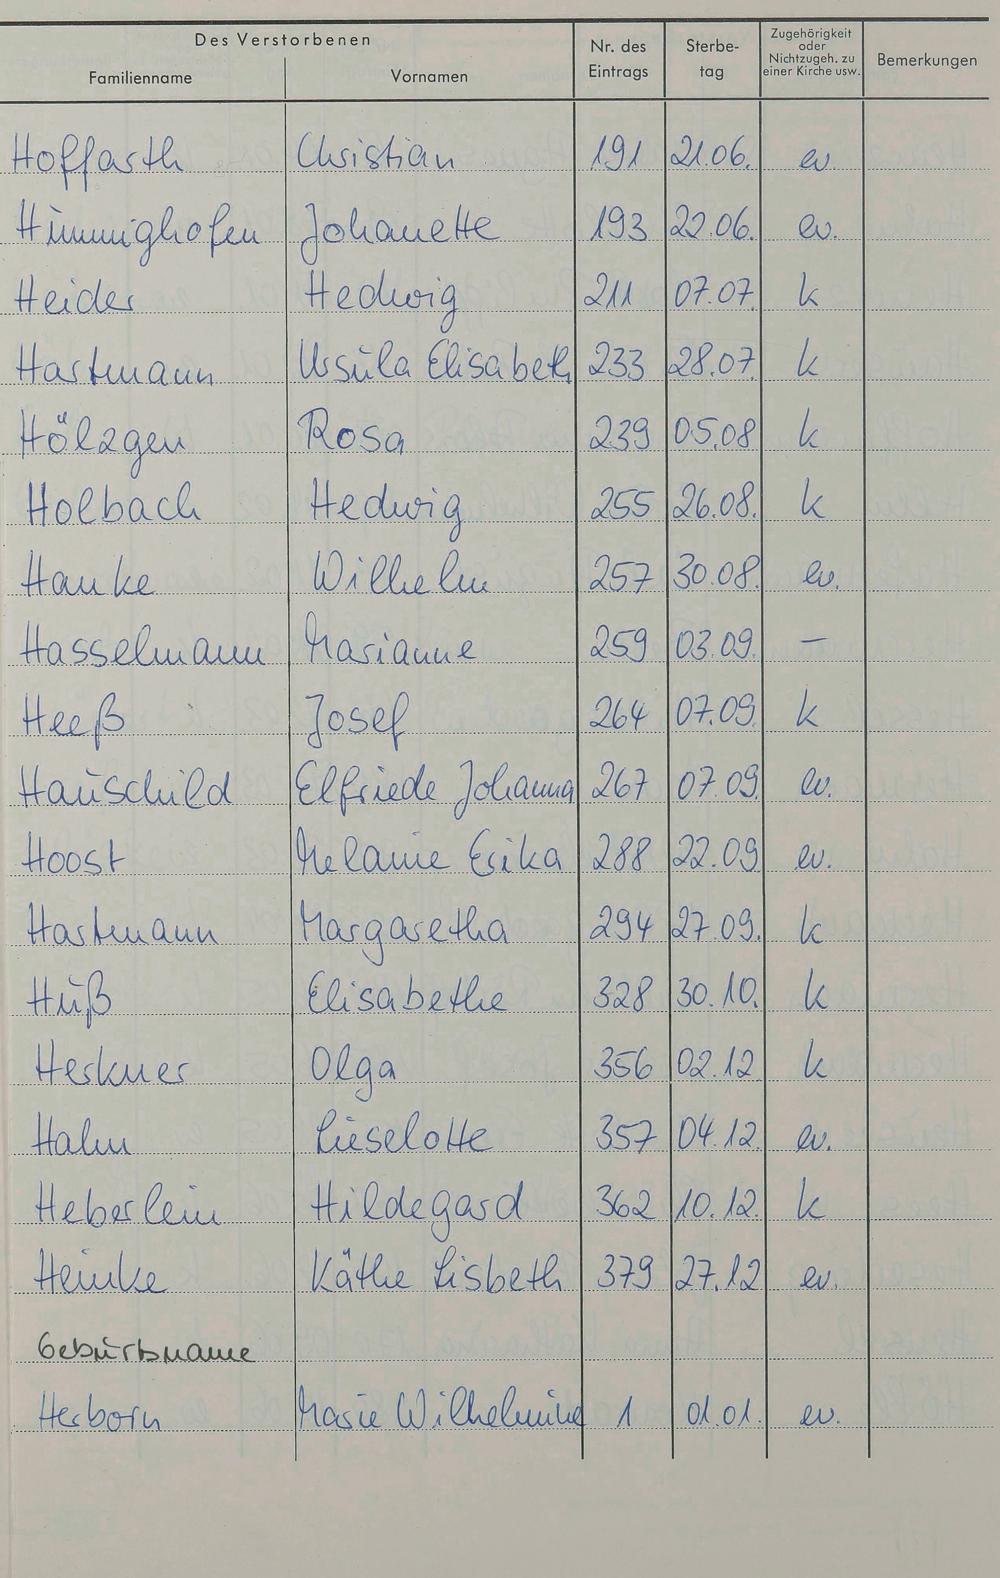 Des Verstorbenen
Familienname Vornamen Nr. des Eintrags Sterbe-tag Zugehörigkeit oder Nichtzugeh. zu einer Kirche usw. Bemerkungen
Hoffarth Christian 191 21.06. ev.
Himmighofen Johanette 193 22.06. ev.
Heider Hedwig 211 07.07. k
Hartmann Ursula Elisabeth 233 28.07. k
Hölzgen Rosa 239 05.08 k
Holbach Hedwig 255 26.08. k
Hanke Wilhelm 257 30.08. ev.
Hasselmann Marianne 259 03.09. —
Heeß Josef 264 07.09. k
Hauschild Elfriede Johanna 267 07.09. ev.
Hoost Melanie Erika 288 22.09 ev.
Hartmann Margaretha 294 27.09. k
Huß Elisabethe 328 30.10. k
Herkner Olga 356 02.12. k
Hahn Lieselotte 357 04.12. ev.
Heberlein Hildegard 362 10.12. k
Heinke Käthe Lisbeth 379 27.12 ev.
Geburtsname
Herborn Marie Wilhelmine 1 01.01. ev.